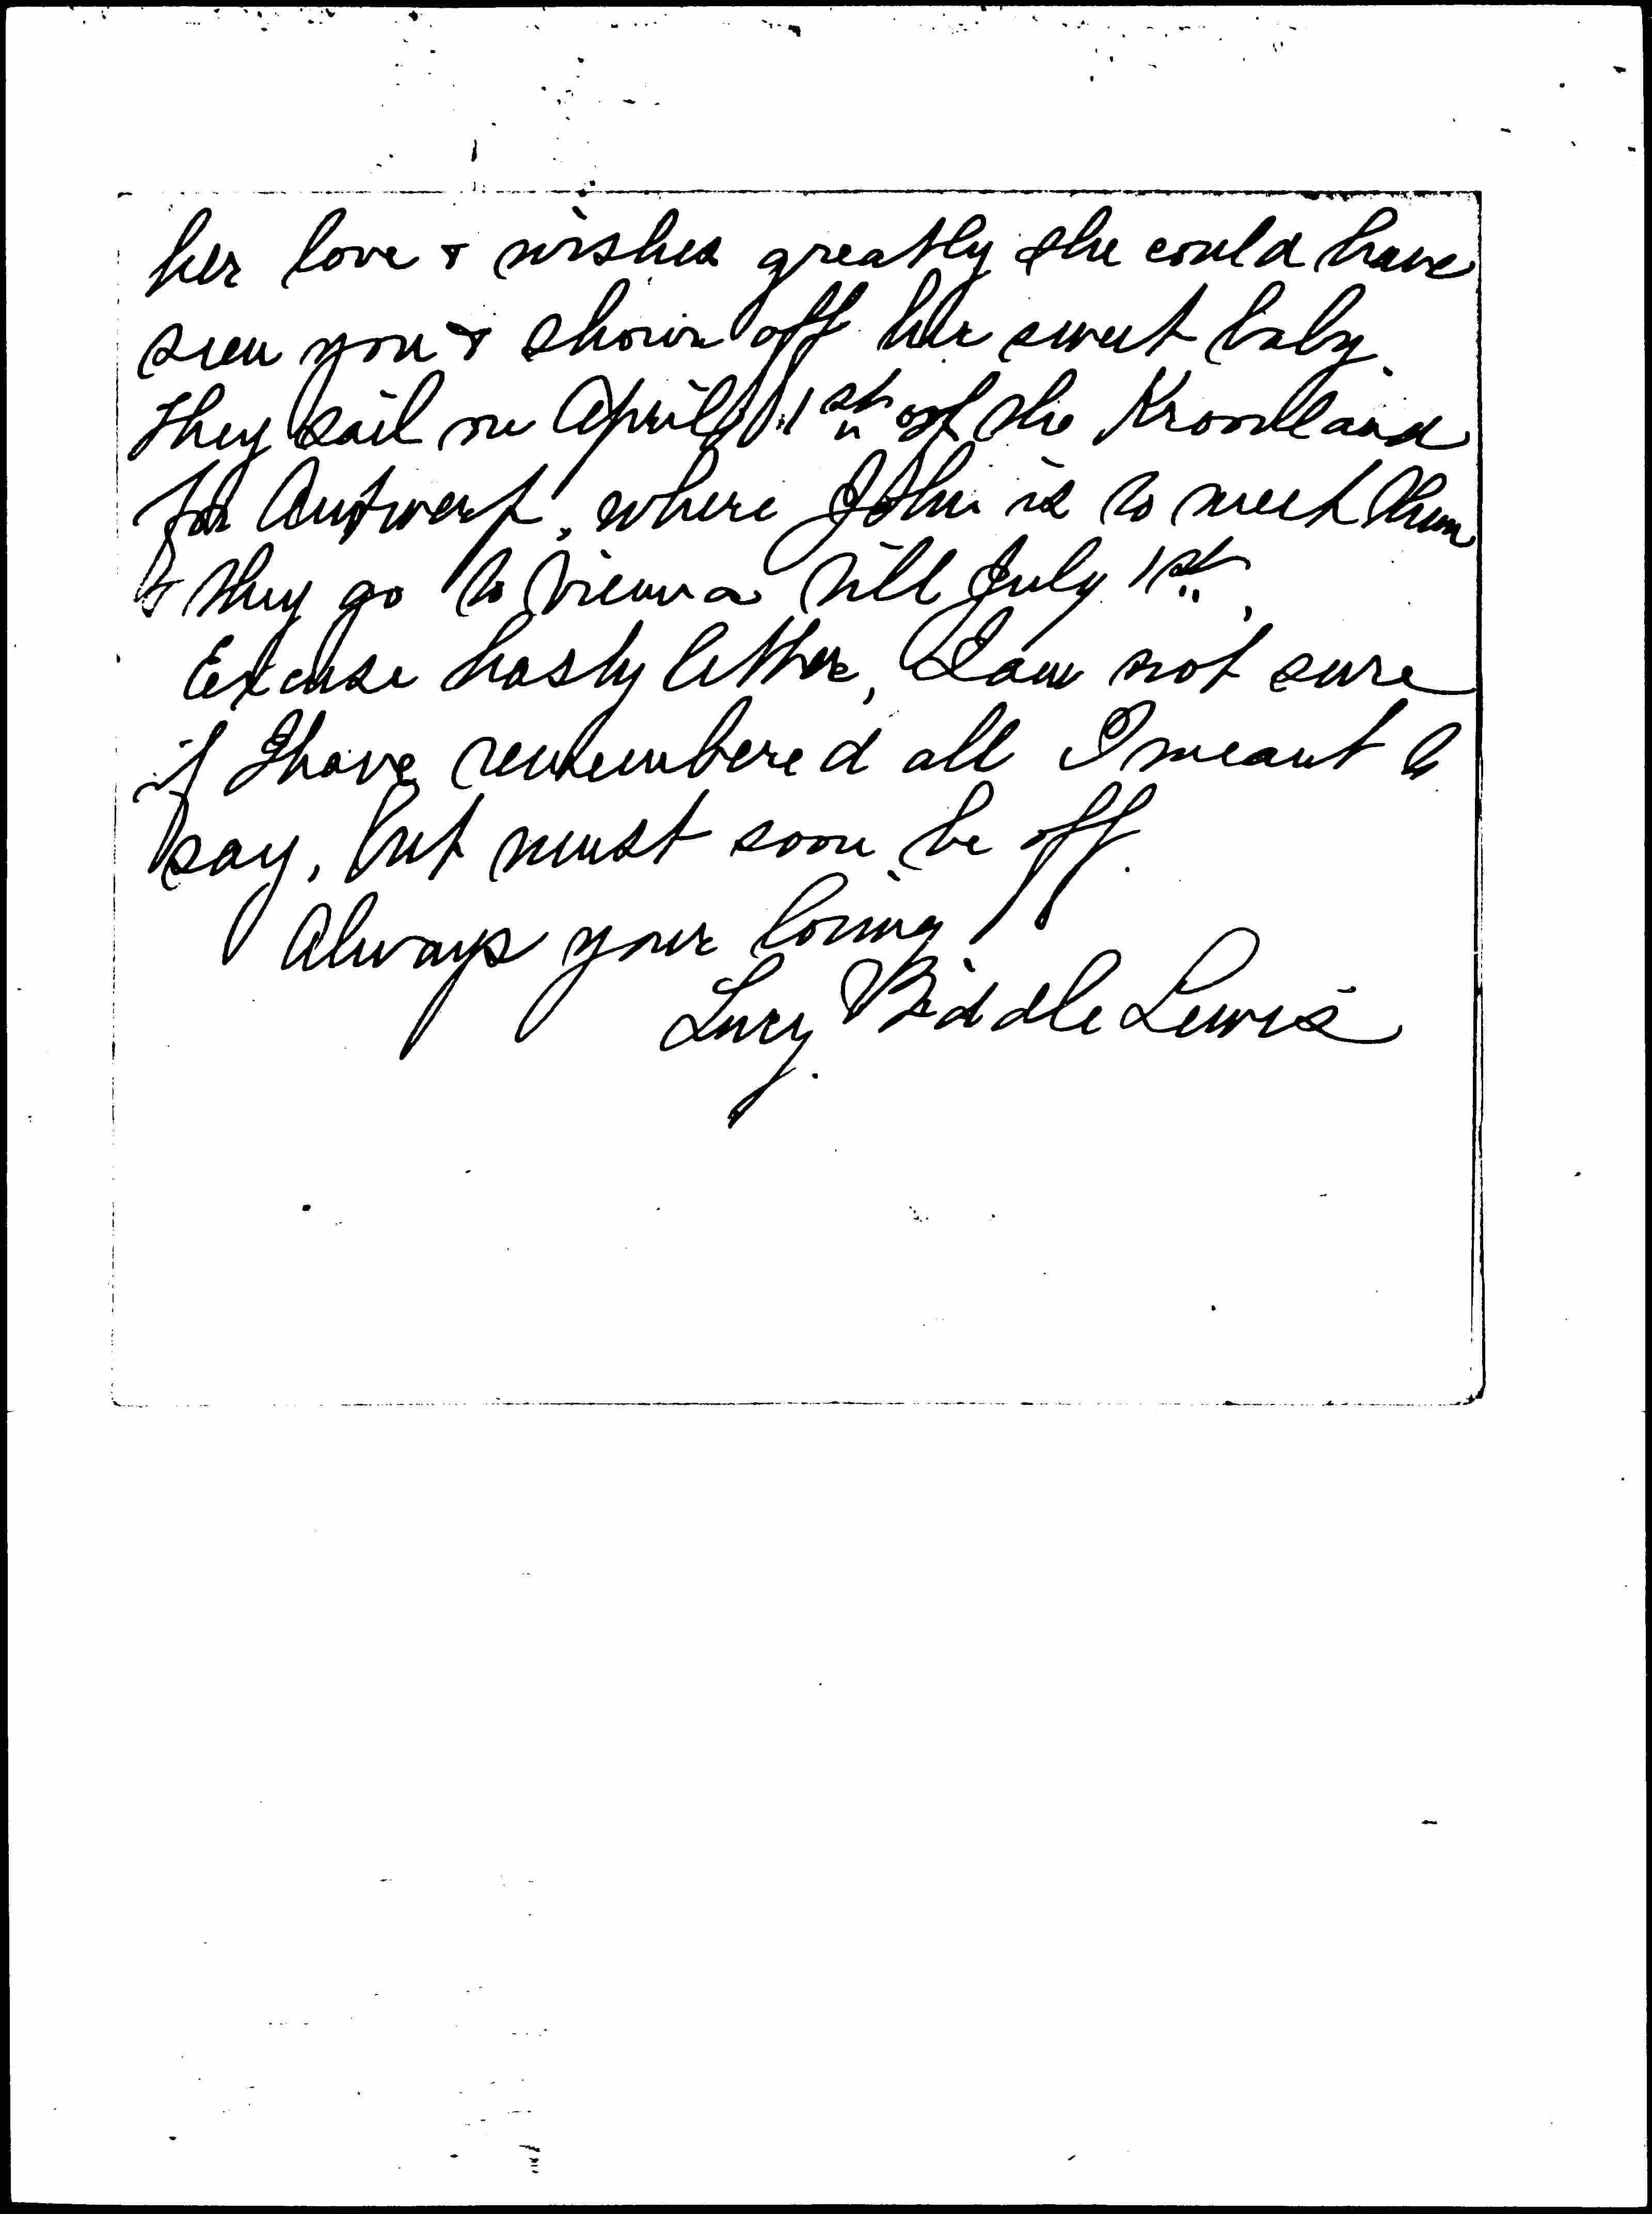 her love & wishes greatly she could have
seen you & shown off her sweet baby.
They sail on April 1st on the Kroonland
for Antwerp, where John is to meet them
& they go to Vienna till July 1st.
Excuse hasty letter, I am not sure
if I have remembered all I meant to
say, but must soon be off.
Always your loving
Lucy Biddle Lewis